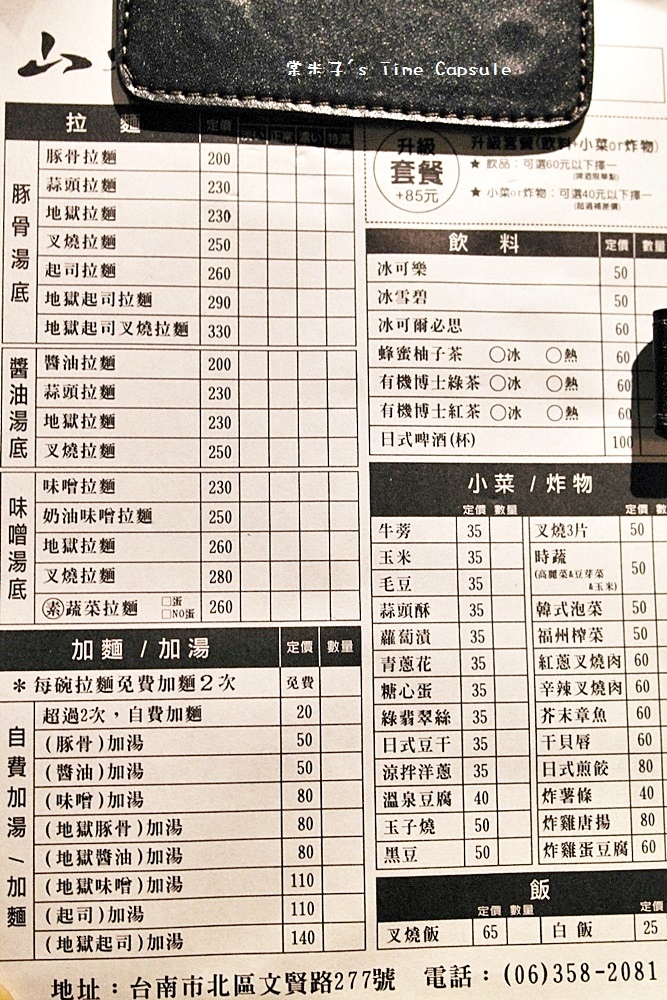 山
棠米子's Time Capsule
拉 麵 定價 淡い 正常 濃い 特濃
豚骨湯底
豚骨拉麵 200
蒜頭拉麵 230
地獄拉麵 230
叉燒拉麵 250
起司拉麵 260
地獄起司拉麵 290
地獄起司叉燒拉麵 330
醬油湯底
醬油拉麵 200
蒜頭拉麵 230
地獄拉麵 230
叉燒拉麵 250
味噌湯底
味噌拉麵 230
奶油味噌拉麵 250
地獄拉麵 260
叉燒拉麵 280
素蔬菜拉麵 □蛋 □NO蛋 260
加麵 / 加湯 定價 數量
*每碗拉麵免費加麵2次 免費
自費加湯/加麵
超過2次,自費加麵 20
(豚骨)加湯 50
(醬油)加湯 50
(味噌)加湯 80
(地獄豚骨)加湯 80
(地獄醬油)加湯 80
(地獄味噌)加湯 110
(起司)加湯 110
(地獄起司)加湯 140
升級
套餐
+85元
升級套餐(飲料+小菜or炸物)
★ 飲品:可選60元以下擇一
(啤酒限單點)
★ 小菜or炸物:可選40元以下擇一
(超過補差價)
飲 料 定價 數量
冰可樂 50
冰雪碧 50
冰可爾必思 60
蜂蜜柚子茶 ○冰 ○熱 60
有機博士綠茶 ○冰 ○熱 60
有機博士紅茶 ○冰 ○熱 60
日式啤酒(杯) 100
小菜 / 炸物
定價 數量 定價 數
牛蒡 35 叉燒3片 50
玉米 35 時蔬 50
毛豆 35 (高麗菜&豆芽菜
&玉米)
蒜頭酥 35 韓式泡菜 50
蘿蔔漬 35 福州榨菜 50
青蔥花 35 紅蔥叉燒肉 60
糖心蛋 35 辛辣叉燒肉 60
綠翡翠絲 35 芥末章魚 60
日式豆干 35 干貝唇 60
涼拌洋蔥 35 日式煎餃 80
溫泉豆腐 40 炸薯條 40
玉子燒 50 炸雞唐揚 80
黑豆 50 炸雞蛋豆腐 60
飯
定價 數量 定價
叉燒飯 65 白飯 25
地址:台南市北區文賢路277號 電話:(06)358-2081